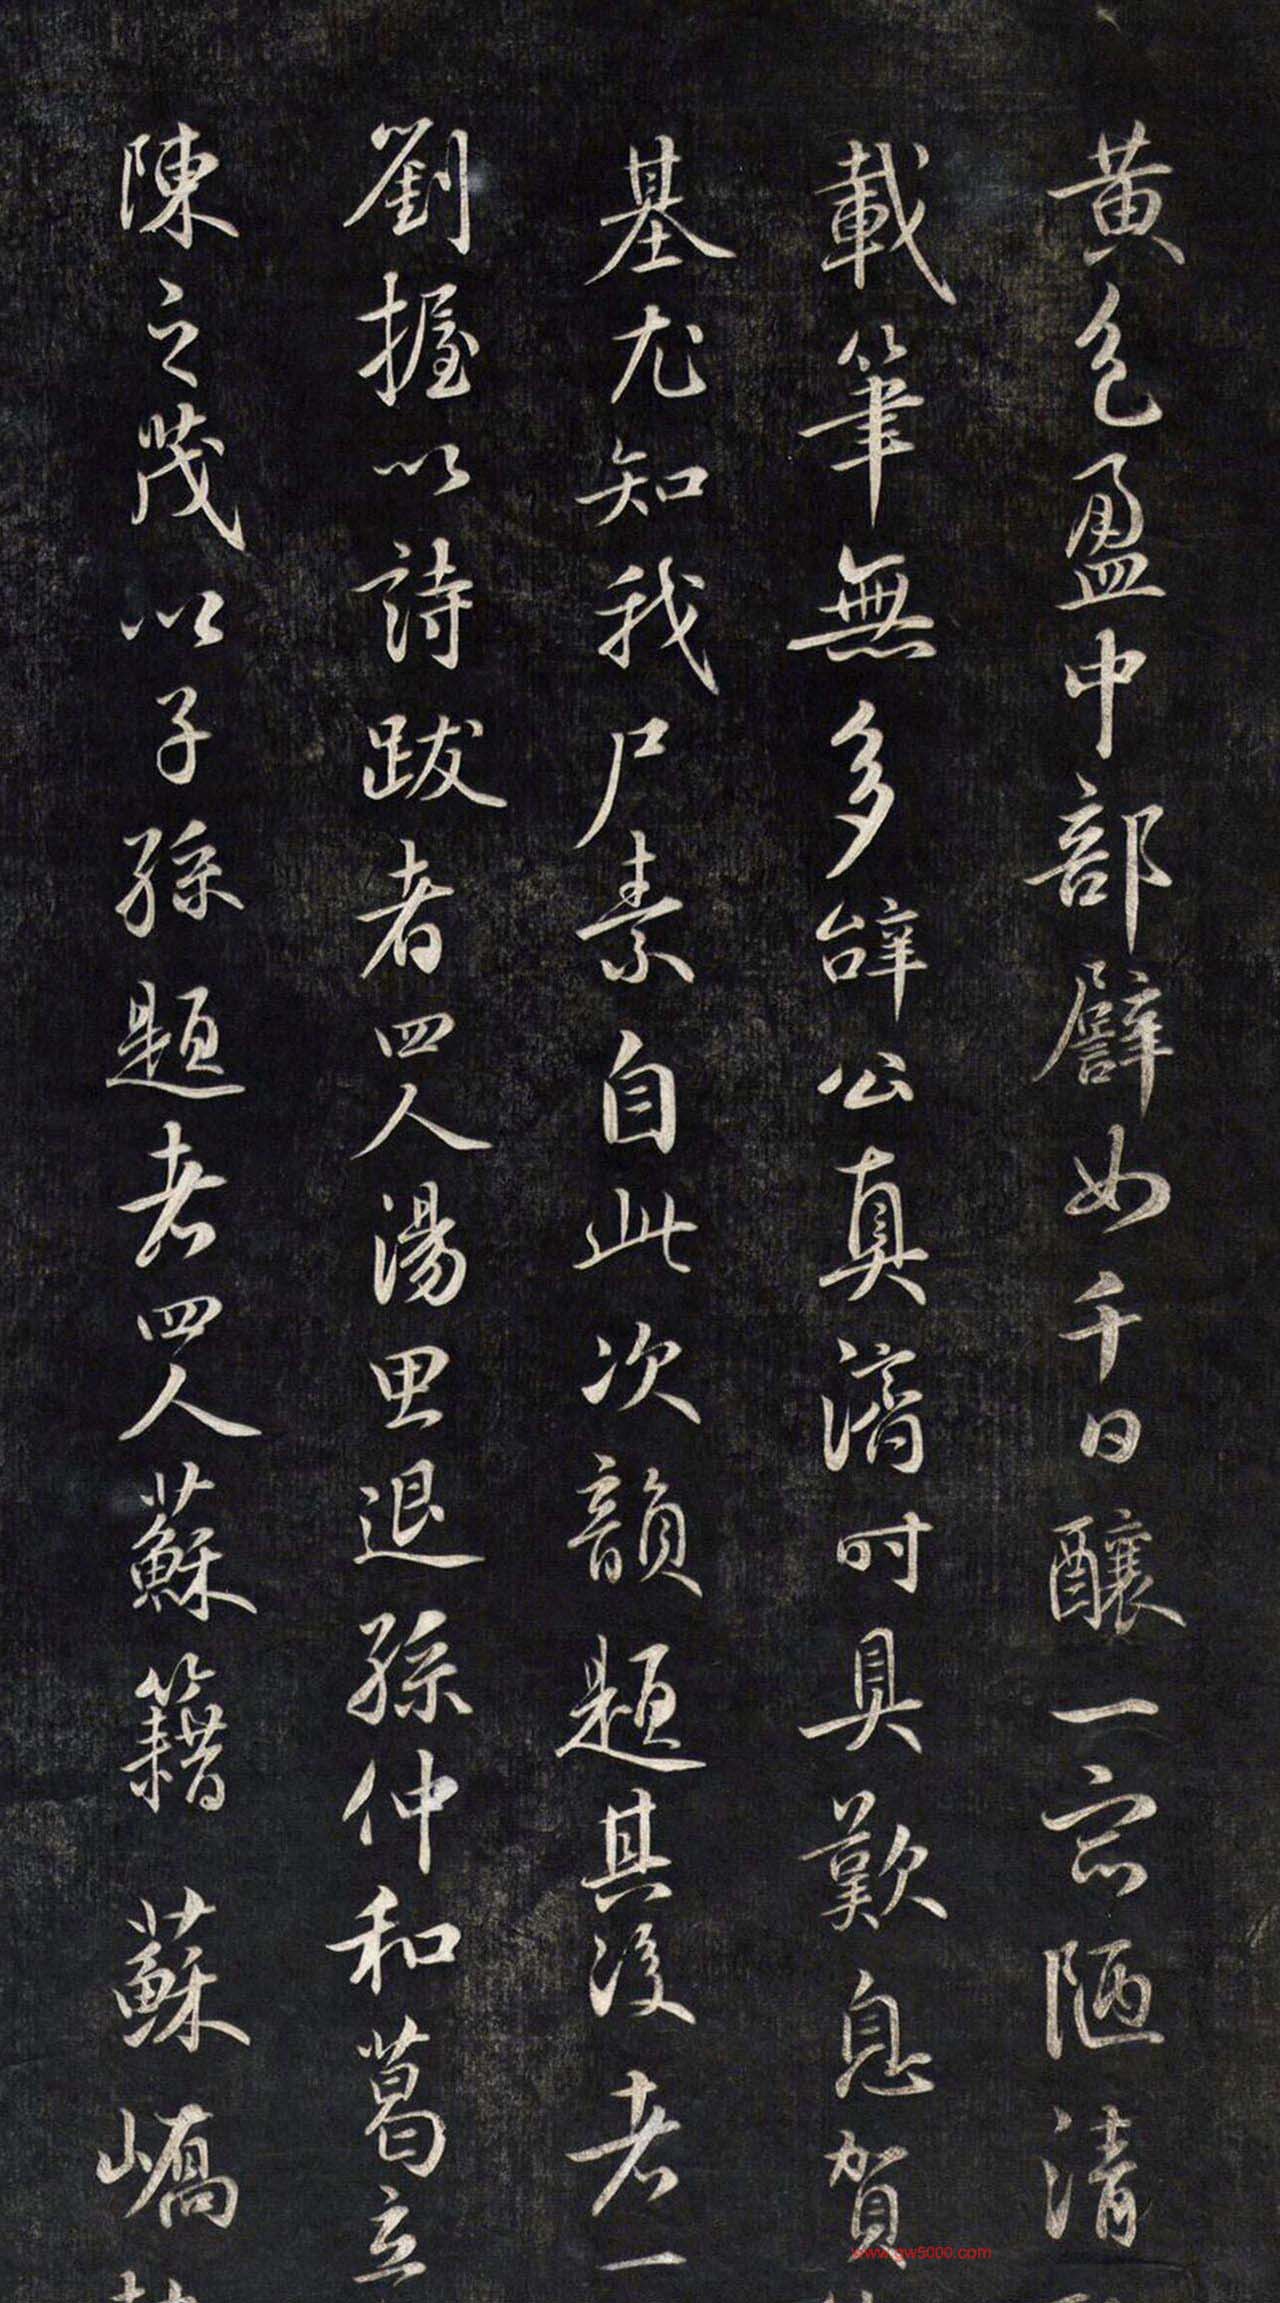 黄色盈中部譬如千日釀一宗陋清
載筆無多辭公真濟時具歎息賀
基尤知我尸素自此次韻題其後者一
劉握以詩跋者四人湯思退孫仲和葛立
陳之茂以子孫題者四人蘇籍蘇嶠
www.gw5000.com